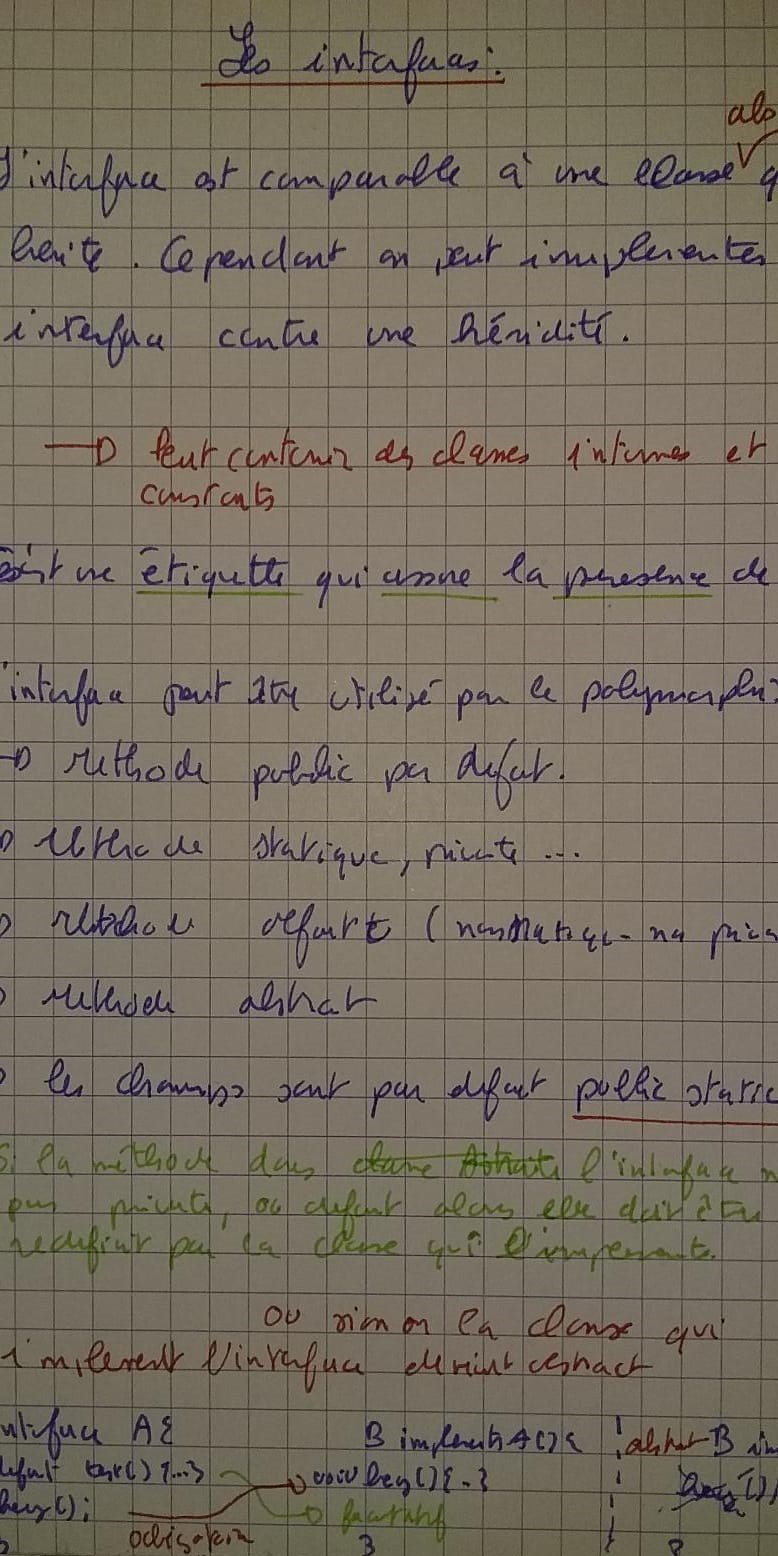 Les interfaces:
abs
L'interface est comparable à une classe q
herite. Cependant on peut implementer
interface contre une hérédité.
→ Peut contenir des classes internes et
constants
est une étiquette qui assure la presence de
interface peut être utilisé par le polymorphi
→ Methode public par defaut.
Methode statique, private ...
Methode default (non statique - non priva
Methode abstract
les champs sont par default public static
Si la methode dans classe Abstraite l'interface n
pas private, ou default alors elle doit être
redefinir par la classe qui l'implemente.
ou sinon la classe qui
implement l'interface devient abstract
interface A{ B implements A(){ abstract B im
default test() {...} → void hey(){..}
hey(); → facultatif
obligation